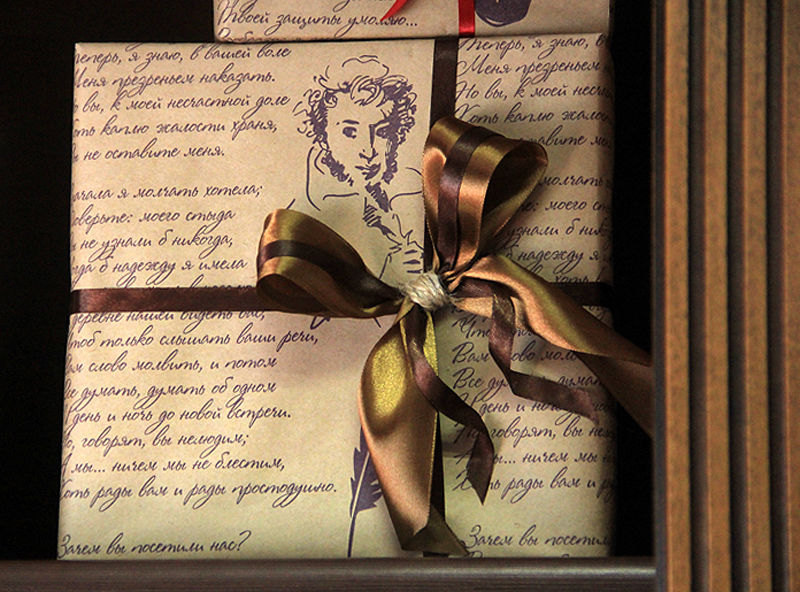 Твоей защиты умоляю...
Теперь, я знаю, в вашей воле
Меня презреньем наказать.
Но вы, к моей несчастной доле
Хоть каплю жалости храня,
Вы не оставите меня.
начала я молчать хотела;
оверьте: моего стыда
не узнали б никогда,
гда б надежду я имела
деревне нашей видеть вас,
Чтоб только слышать ваши речи,
Вам слово молвить, и потом
Все думать, думать об одном
И день и ночь до новой встречи.
Но, говорят, вы нелюдим;
А мы... ничем мы не блестим,
Хоть рады вам и рады простодушно.
Зачем вы посетили нас?
Теперь, я знаю, в
Меня презреньем
Но вы, к моей несчас
Хоть каплю жалос
не оставите м
молчать
моего
узнали б ник
надежду я
Вам слово молви
Все думать
день и но
говорят, вы нел
мы... ничем мы н
Хоть рады вам и р
Зачем вы посетили